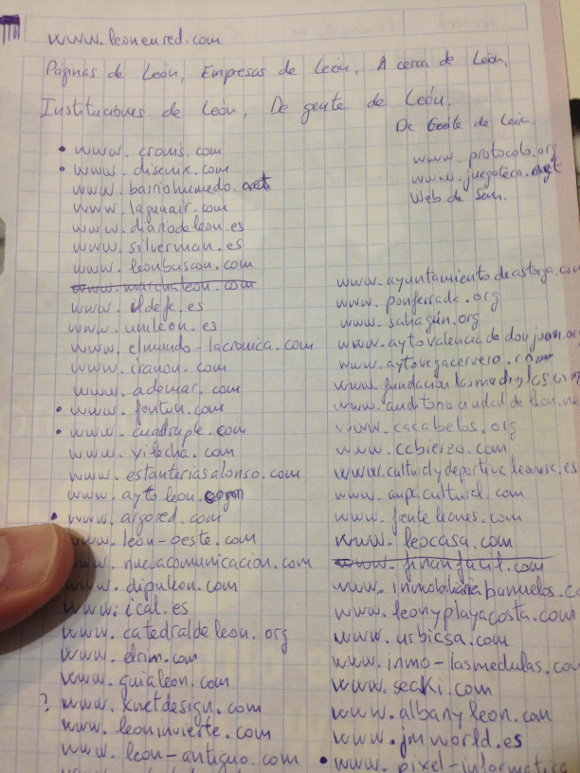 www.leonenred.com
Páginas de León, Empresas de León, A cerca de León,
Instituciones de León, De gente de León.
De Gente de León.
• www.cromis.com
• www.disenix.com
www.barriohumedo.net
www.lagunair.com
www.diariodeleon.es
www.silverman.es
www.leonbuscon.com
www.marchaleon.com
www.ildefe.es
www.unileon.es
www.elmundo-lacronica.com
www.iranon.com
www.ademar.com
• www.fontun.com
• www.cuadruple.com
www.vilecha.com
www.estanteriasalonso.com
www.aytoleon.com
• www.argored.com
www.leon-oeste.com
www.nuevacomunicacion.com
www.dipuleon.com
www.ical.es
www.catedraldeleon.org
www.elrim.com
www.guialeon.com
? www.xnetdesign.com
www.leoninvierte.com
www.leon-antiguo.com
www.protocolo.org
www.juegoteca.net
Web de Sem.
www.ayuntamientodeastorga.com
www.ponferrada.org
www.sahagún.org
www.aytovalenciadedonjuan.or
www.aytovegacervera.com
www.auditoriociudaddeleon.ne
www.cacabelos.org
www.ccbierzo.com
www.culturalydeportivaleonesa.es
www.aupacultural.com
www.frenteleones.com
www.leocasa.com
www.finanfacil.com
www.inmobiliariabanuelos.co
www.leonyplayacosta.com
www.urbicsa.com
www.inmo-lasmedulas.com
www.seaki.com
www.albanyleon.com
www.jmworld.es
• www.pixel-informatica